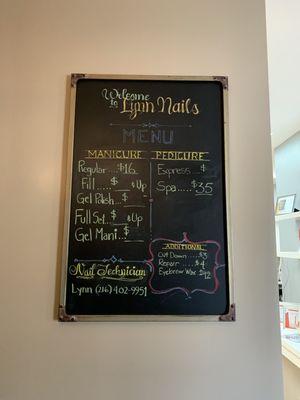 Welcome
to Lynn Nails
MENU
MANICURE
Regular....$16
Fill.....$ & Up
Gel Polish...$
Full Set...$ & Up
Gel Mani...$
PEDICURE
Express....$
Spa.....$35
ADDITIONAL
Cut Down....$3
Repair....$4
Eyebrow Wax $12
Nail Technician
Lynn (216) 402-9951